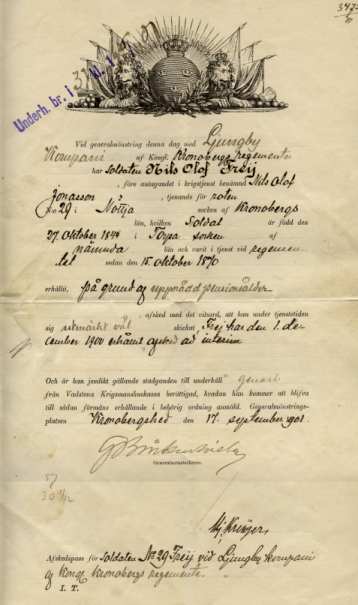 3473
Underh. br. i
Vid generalmönstring denna dag med Ljungby
Kompani af Kongl. Kronobergs regemente
har soldaten Nils Olof Freij
, före antagandet i krigstjenst benämnd Nils Olof
Jonasson, tjenande för roten
No 29 i Nöttja socken af Kronobergs
län, hvilken Soldat är född den
27 Oktober 1844 i Torpa socken af
nämnda län och varit i tjenst vid regemen-
tet sedan den 15 Oktober 1870
erhållit, på grund af uppnådd pensionsålder
, afsked med det vitsord, att han under tjenstetiden
sig utmärkt väl skickat Freij har den 1. de-
cember 1900 erhållit afsked ad interim
Och är han jemlikt gällande stadganden till underhåll genast
från Vadstena Krigsmanshuskassa berättigad, kvadan han kommer att blifva
till sådan förmåns erhållande i behörig ordning anmäld. Generalmönstrings-
platsen Kronobergshed den 17. september 1901.
Generalmönsterherre.
Afskedspass för soldaten No 29 Freij vid Ljungby kompani
af Kongl. Kronobergs regemente.
I. T.